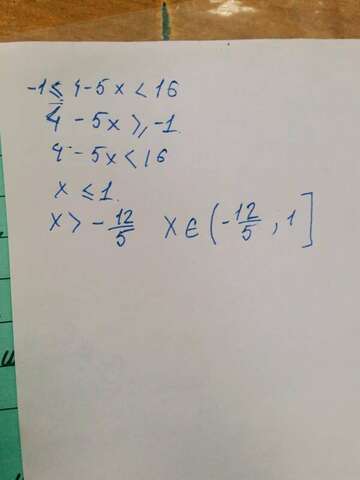 -1 ≤ 4-5x < 16
4 - 5x ≥ -1.
4 - 5x < 16
x ≤ 1.
x > -12/5 x ∈ (-12/5 ; 1]